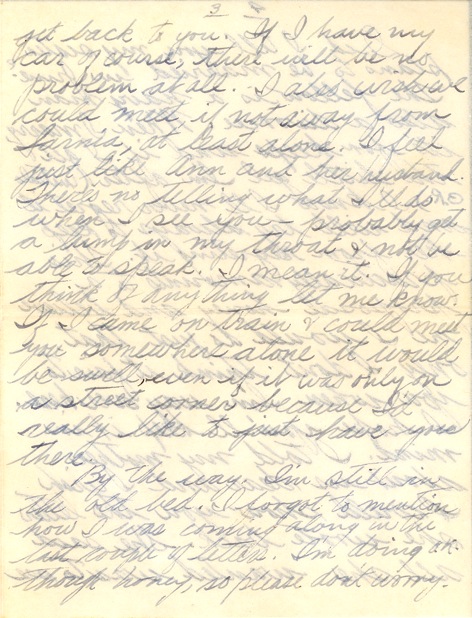 3
get back to you. If I have my
car of course, there will be no
problem at all. I also wish we
could meet, if not away from
Sarnia, at least alone. I feel
just like Ann and her husband.
There's no telling what I'll do
when I see you - probably get
a lump in my throat & not be
able to speak. I mean it. If you
think of anything let me know.
If I came on train & could meet
you somewhere alone it would
be swell, even if it was only on
a street corner, because I'd
really like to just have you
there.
By the way. I'm still in
the old bed. I forgot to mention
how I was coming along in the
last couple of letters. I'm doing ok
though honey, so please don't worry.